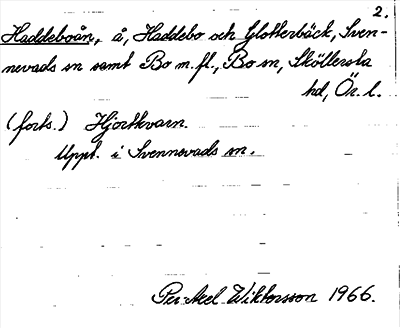 2.
Haddeboån, å, Haddebo och Glotterbäck, Sven-
nevads sn samt Bo m.fl., Bo sn, Sköllersta
hd, Ör. l.
(forts.) Hjortkvarn.
Uppt. i Svennevads sn.
Per-Axel Wiktorsson 1966.